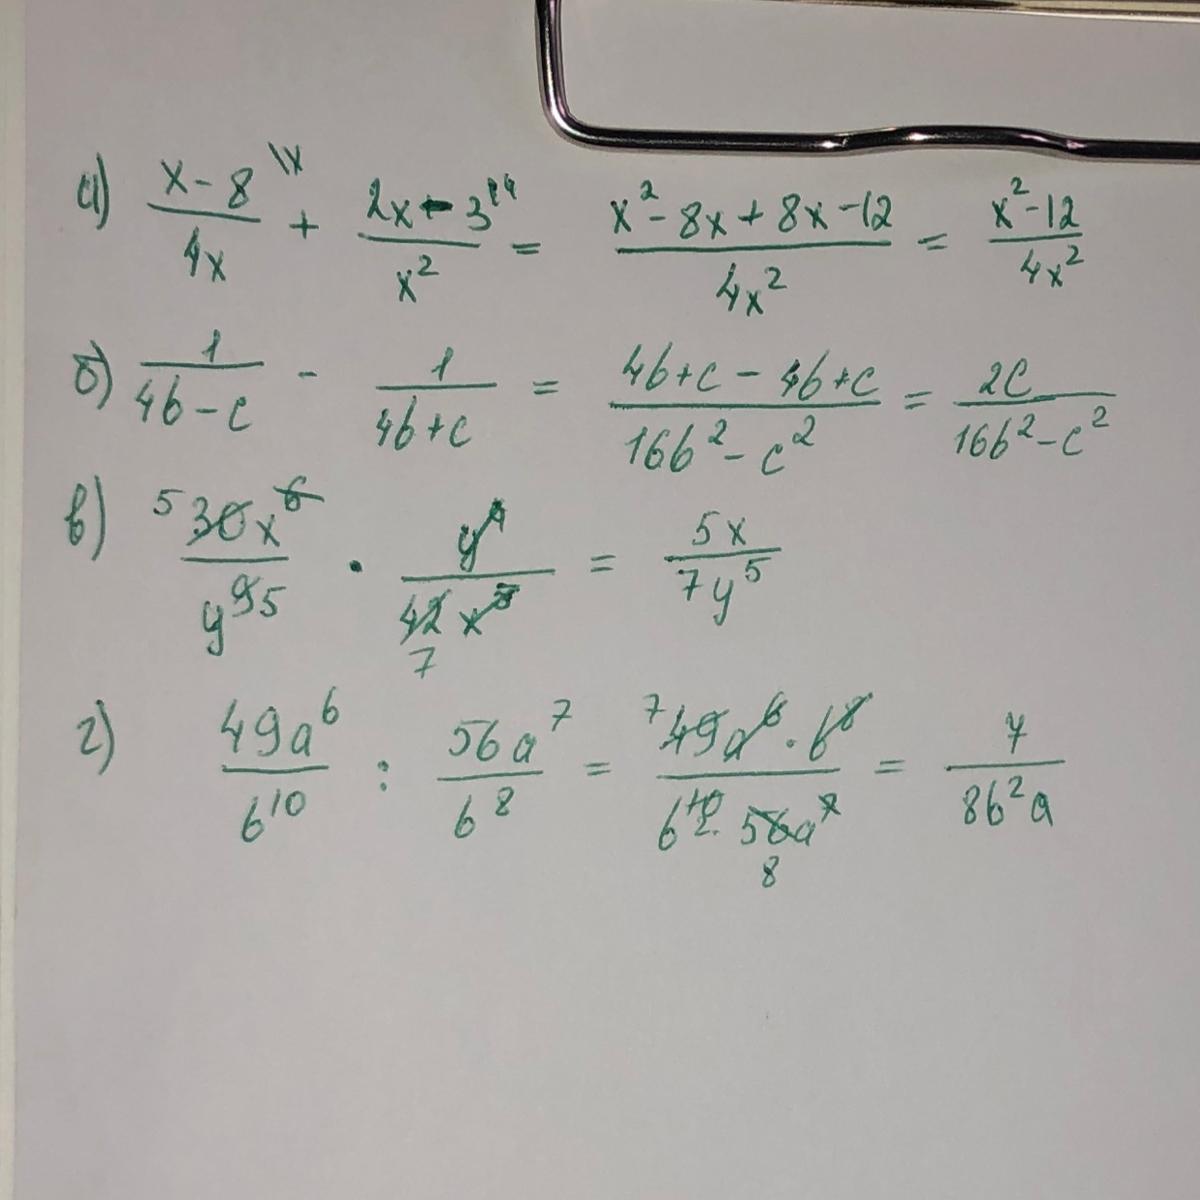 а) (x-8)/(4x) \x + (2x-3)/(x²) \4 = (x²-8x+8x-12)/(4x²) = (x²-12)/(4x²)
б) 1/(4b-c) - 1/(4b+c) = (4b+c-4b+c)/(16b²-c²) = 2c/(16b²-c²)
в) 5 30x⁶/y⁹ 5 · y⁴/42x⁵ 7 = 5x/7y⁵
г) 49a⁶/b¹⁰ : 56a⁷/b⁸ = 7 49a⁶·b⁸/b¹⁰ 2·56a⁷ 8 = 7/8b²a